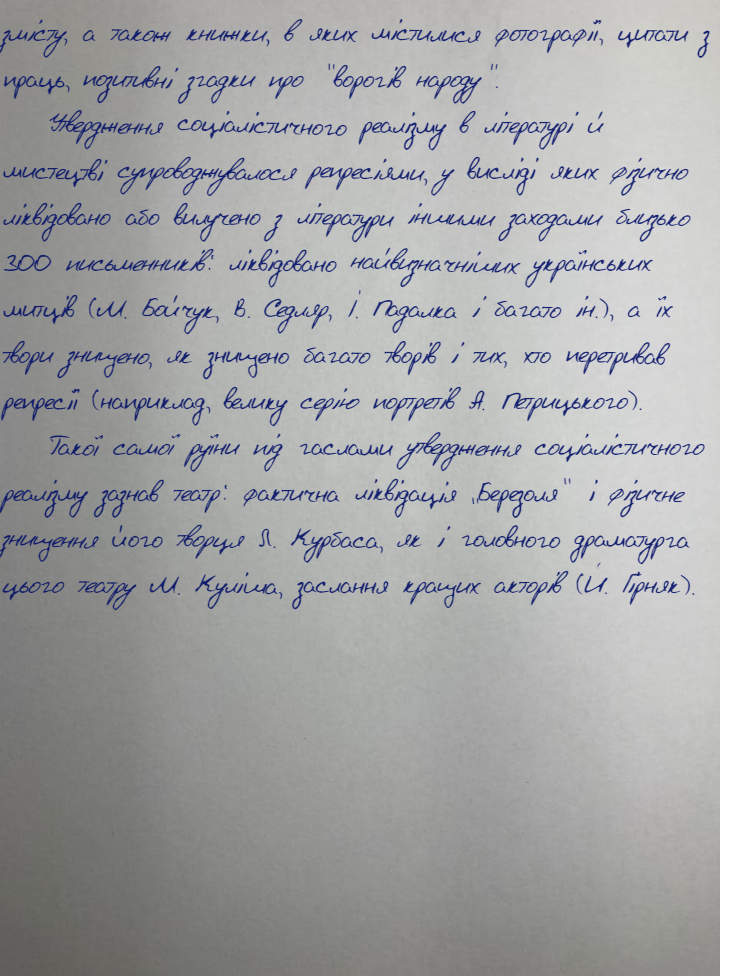 змісту, а також книжки, в яких містилися фотографії, цитати з
праць, позитивні згадки про "ворогів народу".
Утвердження соціалістичного реалізму в літературі й
мистецтві супроводжувалося репресіями, у висліді яких фізично
ліквідовано або вилучено з літератури іншими заходами близько
300 письменників: ліквідовано найвизначніших українських
митців (М. Бойчук, В. Седляр, І. Падалка і багато ін.), а їх
твори знищено, як знищено багато творів і тих, хто перетривав
репресії (наприклад, велику серію портретів А. Петрицького).
Такої самої руїни під гаслами утвердження соціалістичного
реалізму зазнав театр: фактична ліквідація „Березоля" і фізичне
знищення його творця Л. Курбаса, як і головного драматурга
цього театру М. Куліша, заслання кращих акторів (Й. Гірняк).